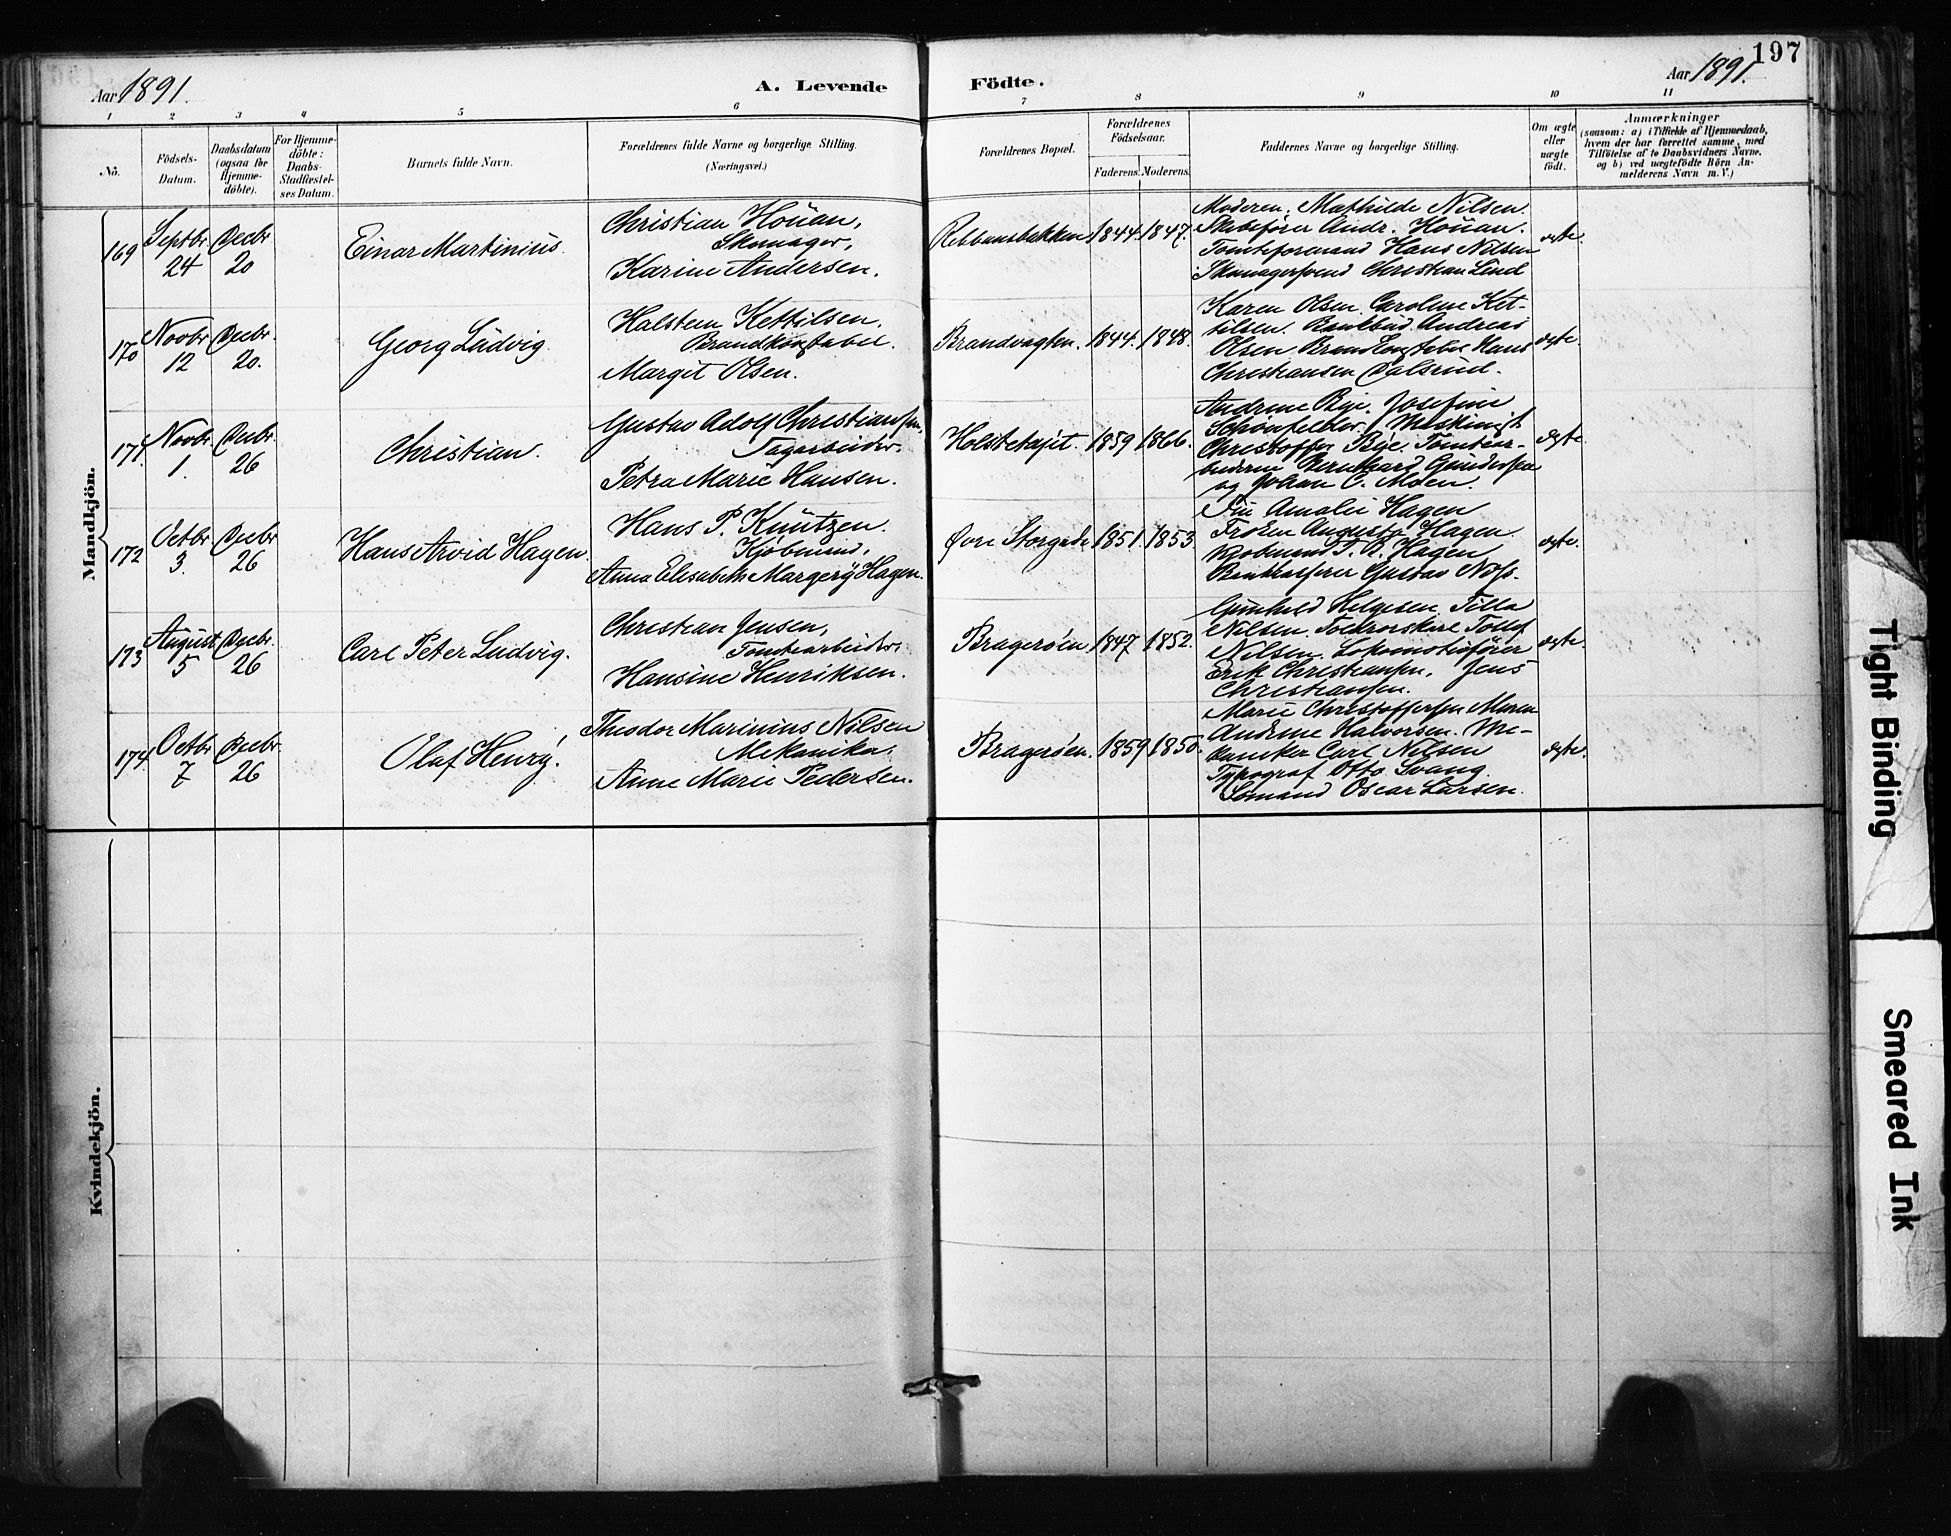 197
Aar 1891.
A. Levende
Födte.
Aar 1891.
1 2 3 4 5 6 7 8 9 10 11
No.
Födsels-
Datum.
Daabsdatum
(ogsaa for
Hjemme-
döbte).
For Hjemme-
döbte:
Daabs-
Stadfæstel-
ses Datum.
Barnets fulde Navn.
Forældrenes fulde Navne og borgerlige Stilling.
(Næringsvei.)
Forældrenes Bopæl.
Forældrenes
Födselsaar.
Faderens. Moderens.
Faddernes Navne og borgerlige Stilling.
Om ægte
eller
uægte
födt.
Anmærkninger
(saasom: a) i Tilfælde af Hjemmedaab,
hvem der har forrettet samme, med
Tilföielse af to Daabsvidners Navne,
og b) ved uægtefödte Börn An-
melderens Navn m. V.)
Mandkjön.
169
Septbr
24
Decbr
20
Einar Martinius.
Christian Houan,
Skomager,
Karine Andersen.
Rebbansbakken
1844
1847.
Moderen. Mathilde Nilsen.
Andr. Houan.
Tomteformand Hans Nilsen
Skomagersvend Christian Lind
ægte.
170
Novbr
12
Decbr.
20.
Georg Ludvig.
Halsten Kettilsen.
Brandkonstabel
Margit Olsen.
Brandvagten.
1844.
1848.
Karen Olsen. Caroline Ket-
tilsen. Bankbud Andreas
Olsen Brandkonstabel Hans
Christiansen Dalsrud.
ægte.
171.
Novbr.
1.
Decbr.
26
Christian.
Gustav Adolf Christiansen,
Petra Marie Hansen.
1859
1866.
Andrine Bye. Josefine
Christoffer Bye. Tomtear-
beiderne Bernhard Gundersen
og Johan C. Moen.
ægte.
172
Octbr
3
Decbr
26
Hans Arvid Hagen.
Hans P. Knutzen.
Kjöbmand,
Anna Elisabeth Margery Hagen.
Øvre Storgade
1851.
1853
Fru Amalie Hagen
Frøken Augusta Hagen.
Kjøbmand T. R. Hagen
Bankkasserer Gustav
ægte.
173
August
5
Decbr.
26
Carl Peter Ludvig.
Christian Jensen,
Tomtearbeider,
Hansine Henriksen.
Bragerøen
1847
1852.
Gunhild Helgesen. Tilla
Nilsen. Tollef
Nilsen. Lokomotivfører
Erik Christiansen. Jens
Christiansen.
ægte.
174.
Octbr
7
Decbr.
26
Olaf Henry.
Theodor Marinius Nilsen
Mekaniker.
Anne Marie Pedersen.
Bragerøen.
1859
1850.
Marie Christoffersen Maren
Andrine Halvorsen. Me-
kaniker Carl Nilsen
Typograf Otto Svang.
Sømand Oscar Larsen.
ægte.
Kvindekjön.
Tight Binding
Smeared Ink